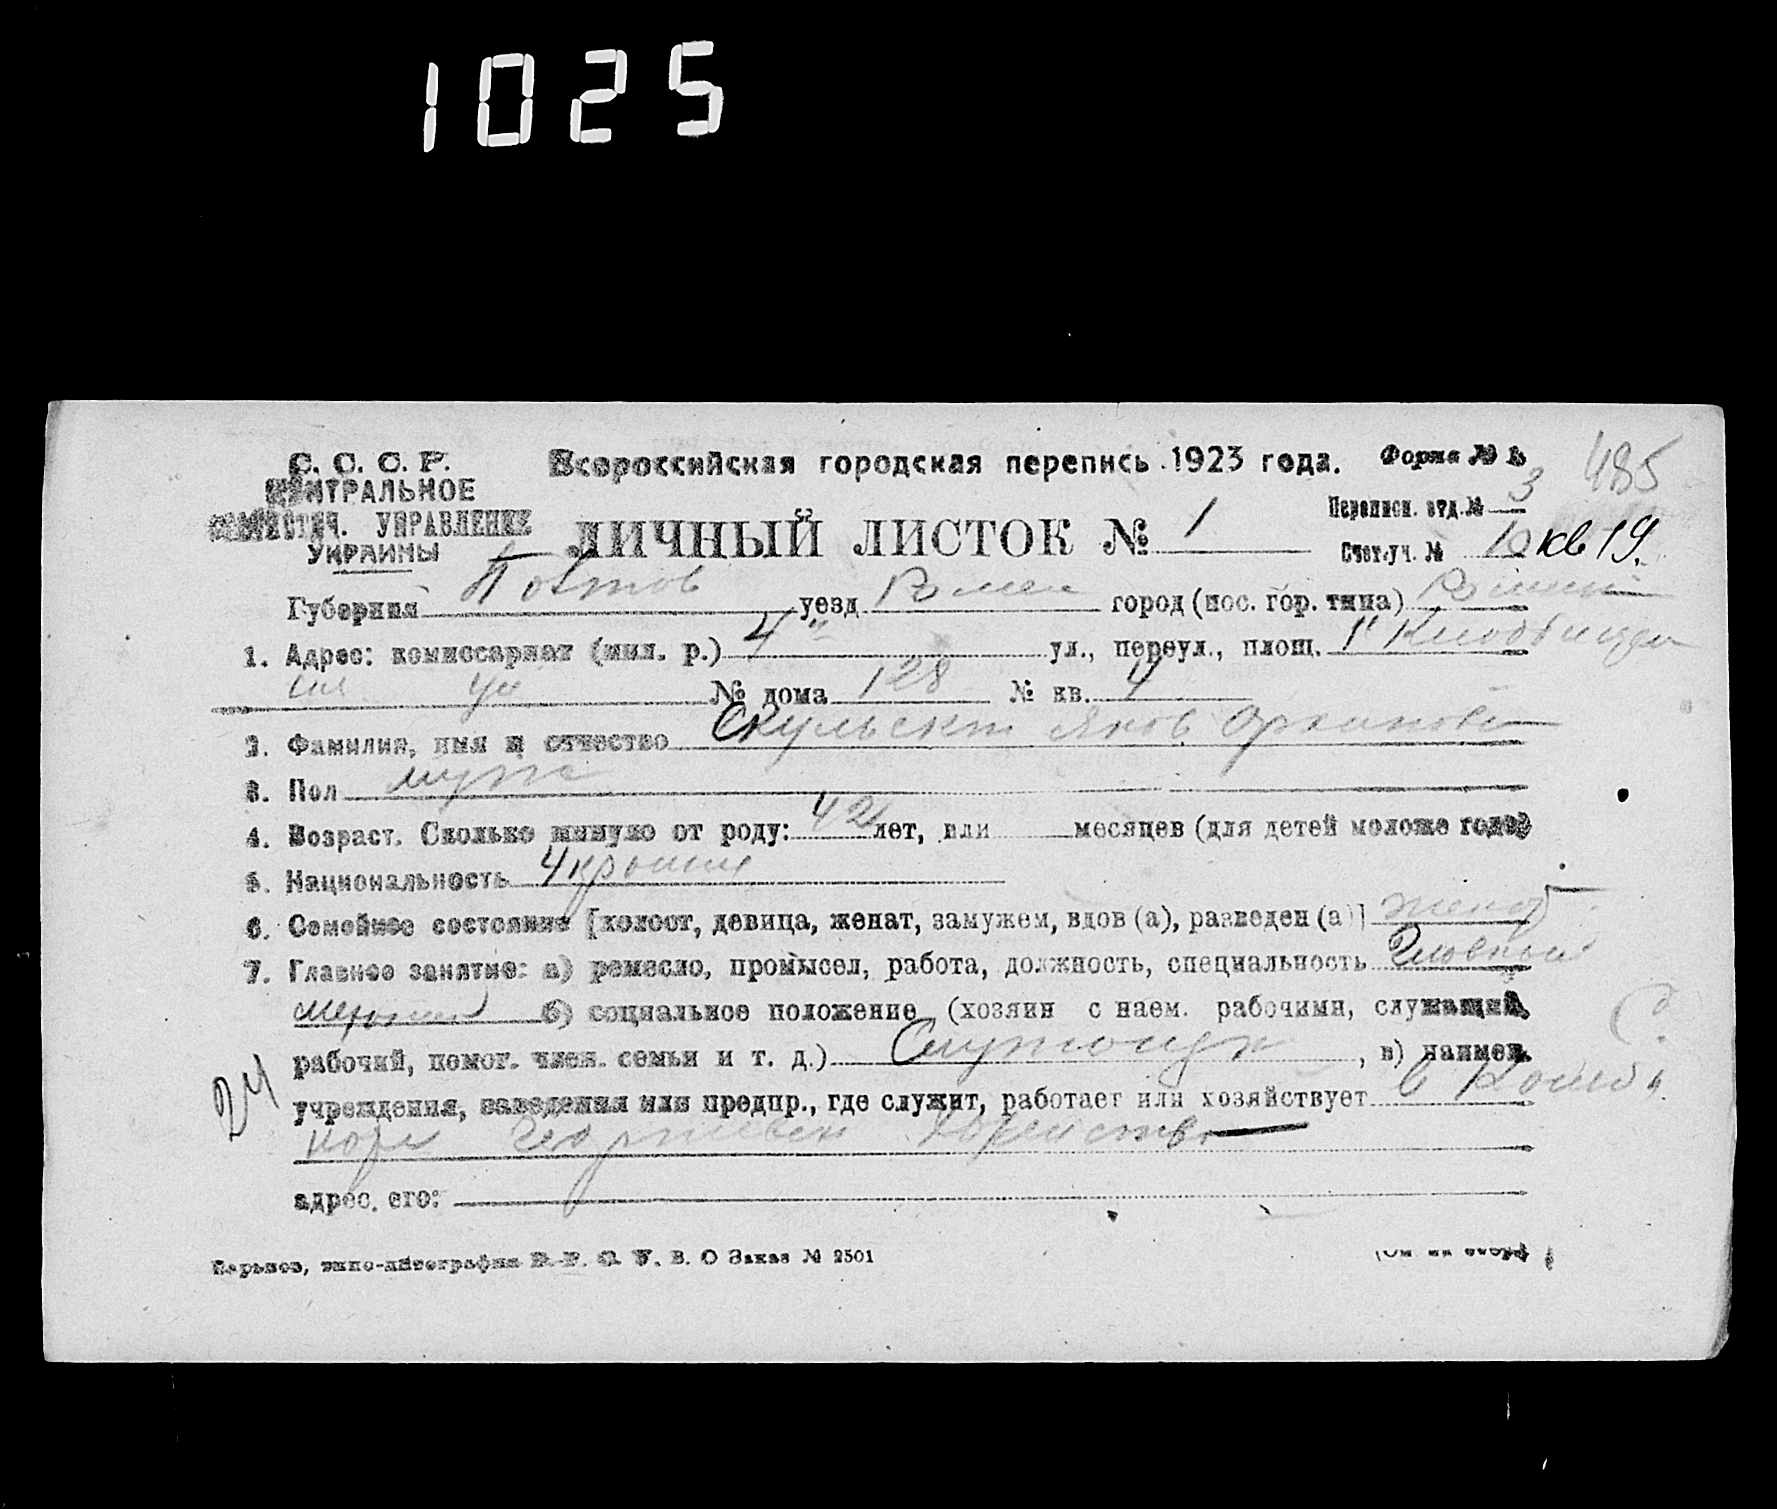 1025
С. С. С. Р.
ЦЕНТРАЛЬНОЕ
СТАТИСТИЧ. УПРАВЛЕНИЕ
УКРАИНЫ
Всероссийская городская перепись 1923 года.
Форма № 1.
485
ЛИЧНЫЙ ЛИСТОК № 1
Переписн. отд. № 3
Счетн. уч. № 10 кв 19.
Губерния Полтов уезд Ромен город (пос. гор. типа) Ромны
1. Адрес: комиссариат (мил. р.) 4 ул., переул., площ. 1
ул № дома 128 № кв. 4
2. Фамилия, имя и отчество Скульский Яков
3. Пол муж
4. Возраст. Сколько минуло от роду: 42 лет, или месяцев (для детей моложе года)
5. Национальность Украинец
6. Семейное состояние [холост, девица, женат, замужем, вдов (а), разведен (а)] женат
7. Главное занятие: а) ремесло, промысел, работа, должность, специальность
б) социальное положение (хозяин с наем. рабочими, служащий,
рабочий, помог. член. семьи и т. д.) Служащий, в) наимен.
24
учреждения, заведения или предпр., где служит, работает или хозяйствует в
адрес его:
Харьков, типо-литография В. Р. С. У. В. О Заказ № 2501